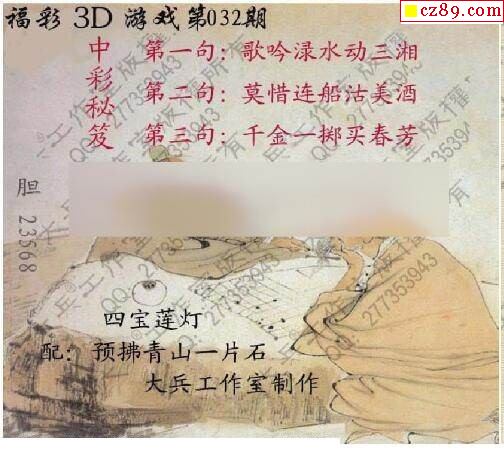 cz89.com
福彩 3D 游戏第032期
中彩秘笈
第一句：歌吟渌水动三湘
第二句：莫惜连船沽美酒
第三句：千金一掷买春芳
胆 23568
四宝莲灯
配：预拂青山一片石
大兵工作室制作
兵工作室版权所有
QQ:277353943